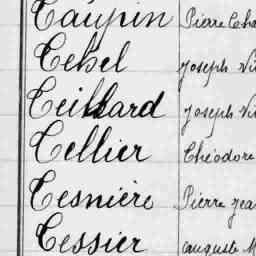 Taupin Pierre
Tebel Joseph
Teillard Joseph
Tellier Théodore
Tesnière Pierre Jean
Tessier Auguste